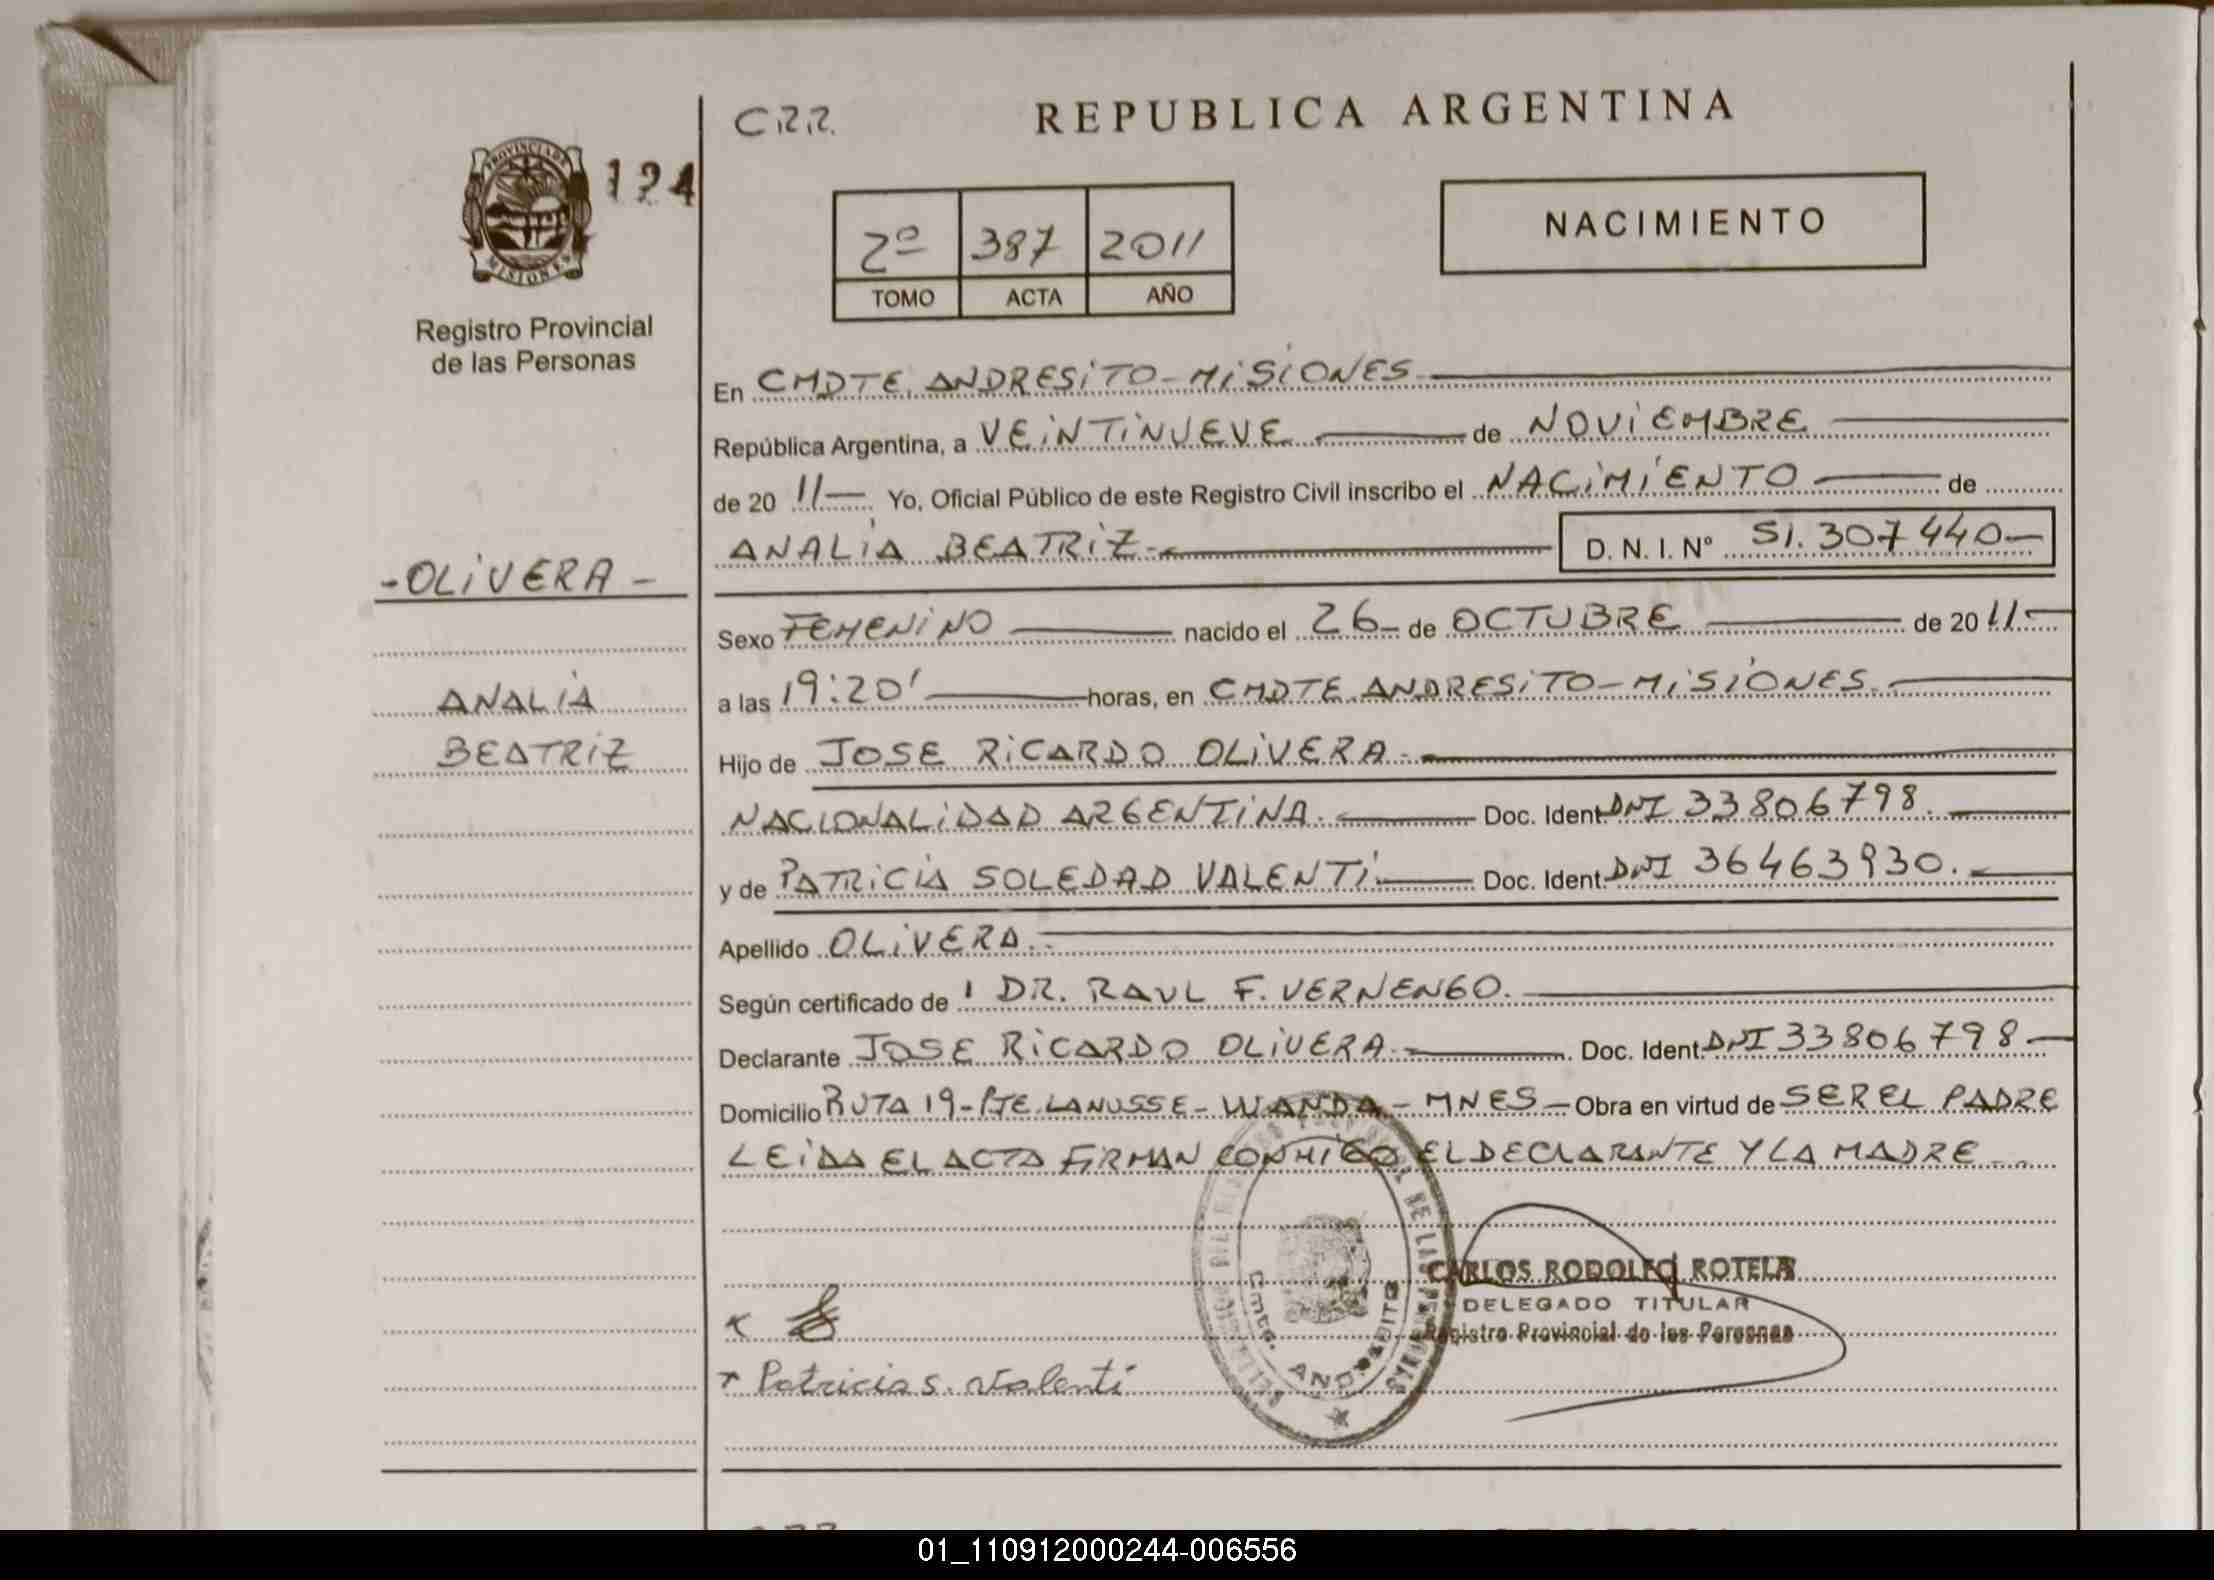 C.R.R.
REPUBLICA ARGENTINA
PROVINCIA DE
MISIONES
124
2º 387 2011
TOMO ACTA AÑO
NACIMIENTO
Registro Provincial
de las Personas
En CMDTE. ANDRESITO-MISIONES
República Argentina, a VEINTINUEVE de NOVIEMBRE
de 20 11 Yo, Oficial Público de este Registro Civil inscribo el NACIMIENTO de
ANALIA BEATRIZ.- D. N. I. Nº 51.307440-
-OLIVERA-
Sexo FEMENINO nacido el 26 de OCTUBRE de 20 11.-
ANALIA
a las 19:20' horas, en CMDTE. ANDRESITO-MISIONES.
BEATRIZ
Hijo de JOSE RICARDO OLIVERA.-
NACIONALIDAD ARGENTINA. Doc. Ident. DNI 33806798.
y de PATRICIA SOLEDAD VALENTI. Doc. Ident. DNI 36463930.
Apellido OLIVERA.
Según certificado de DR. RAUL F. VERNENGO.
Declarante JOSE RICARDO OLIVERA. Doc. Ident. DNI 33806798
Domicilio RUTA 19-PTE. LANUSSE-WANDA-MNES- Obra en virtud de SER EL PADRE
LEIDA EL ACTA FIRMAN CONMIGO EL DECLARANTE Y LA MADRE
CARLOS RODOLFO ROTELA
DELEGADO TITULAR
Registro Provincial de las Personas
Cmte. ANDRESITO
Patricia S. Valenti
01_110912000244-006556